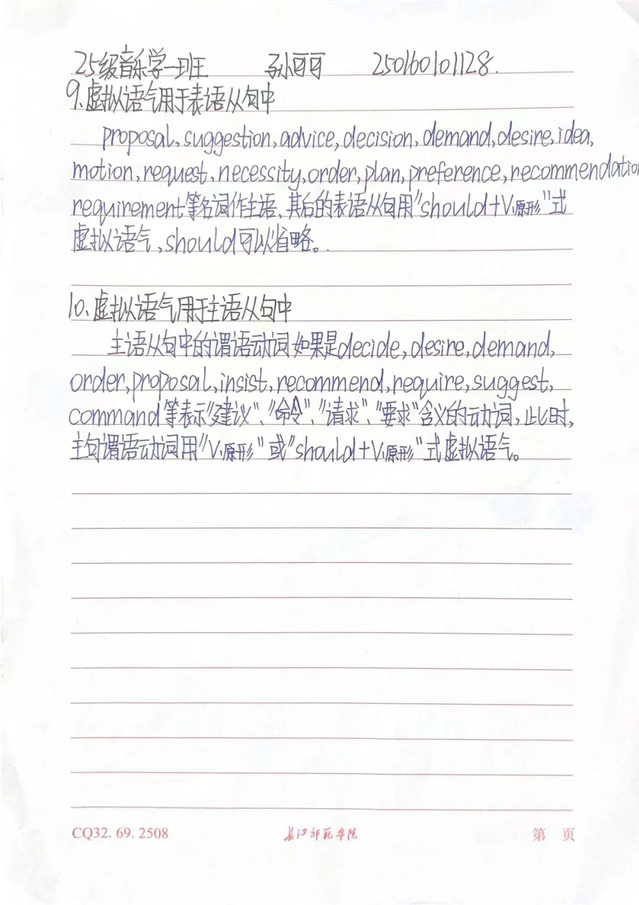 25级音乐学一班 孙可可 250160101128.
9.虚拟语气用于表语从句中
proposal,suggestion,advice,decision,demand,desire,idea,
motion,request,necessity,order,plan,preference,recommendation
requirement等名词作主语,其后的表语从句用"should+V.原形"式
虚拟语气,should可以省略。
10.虚拟语气用于主语从句中
主语从句中的谓语动词如果是decide,desire,demand,
order,proposal,insist,recommend,require,suggest,
command等表示"建议"、"命令"、"请求"、"要求"含义的动词,此时,
主句谓语动词用"V.原形"或"should+V.原形"式虚拟语气。
CQ32.69.2508 长江师范学院 第 页